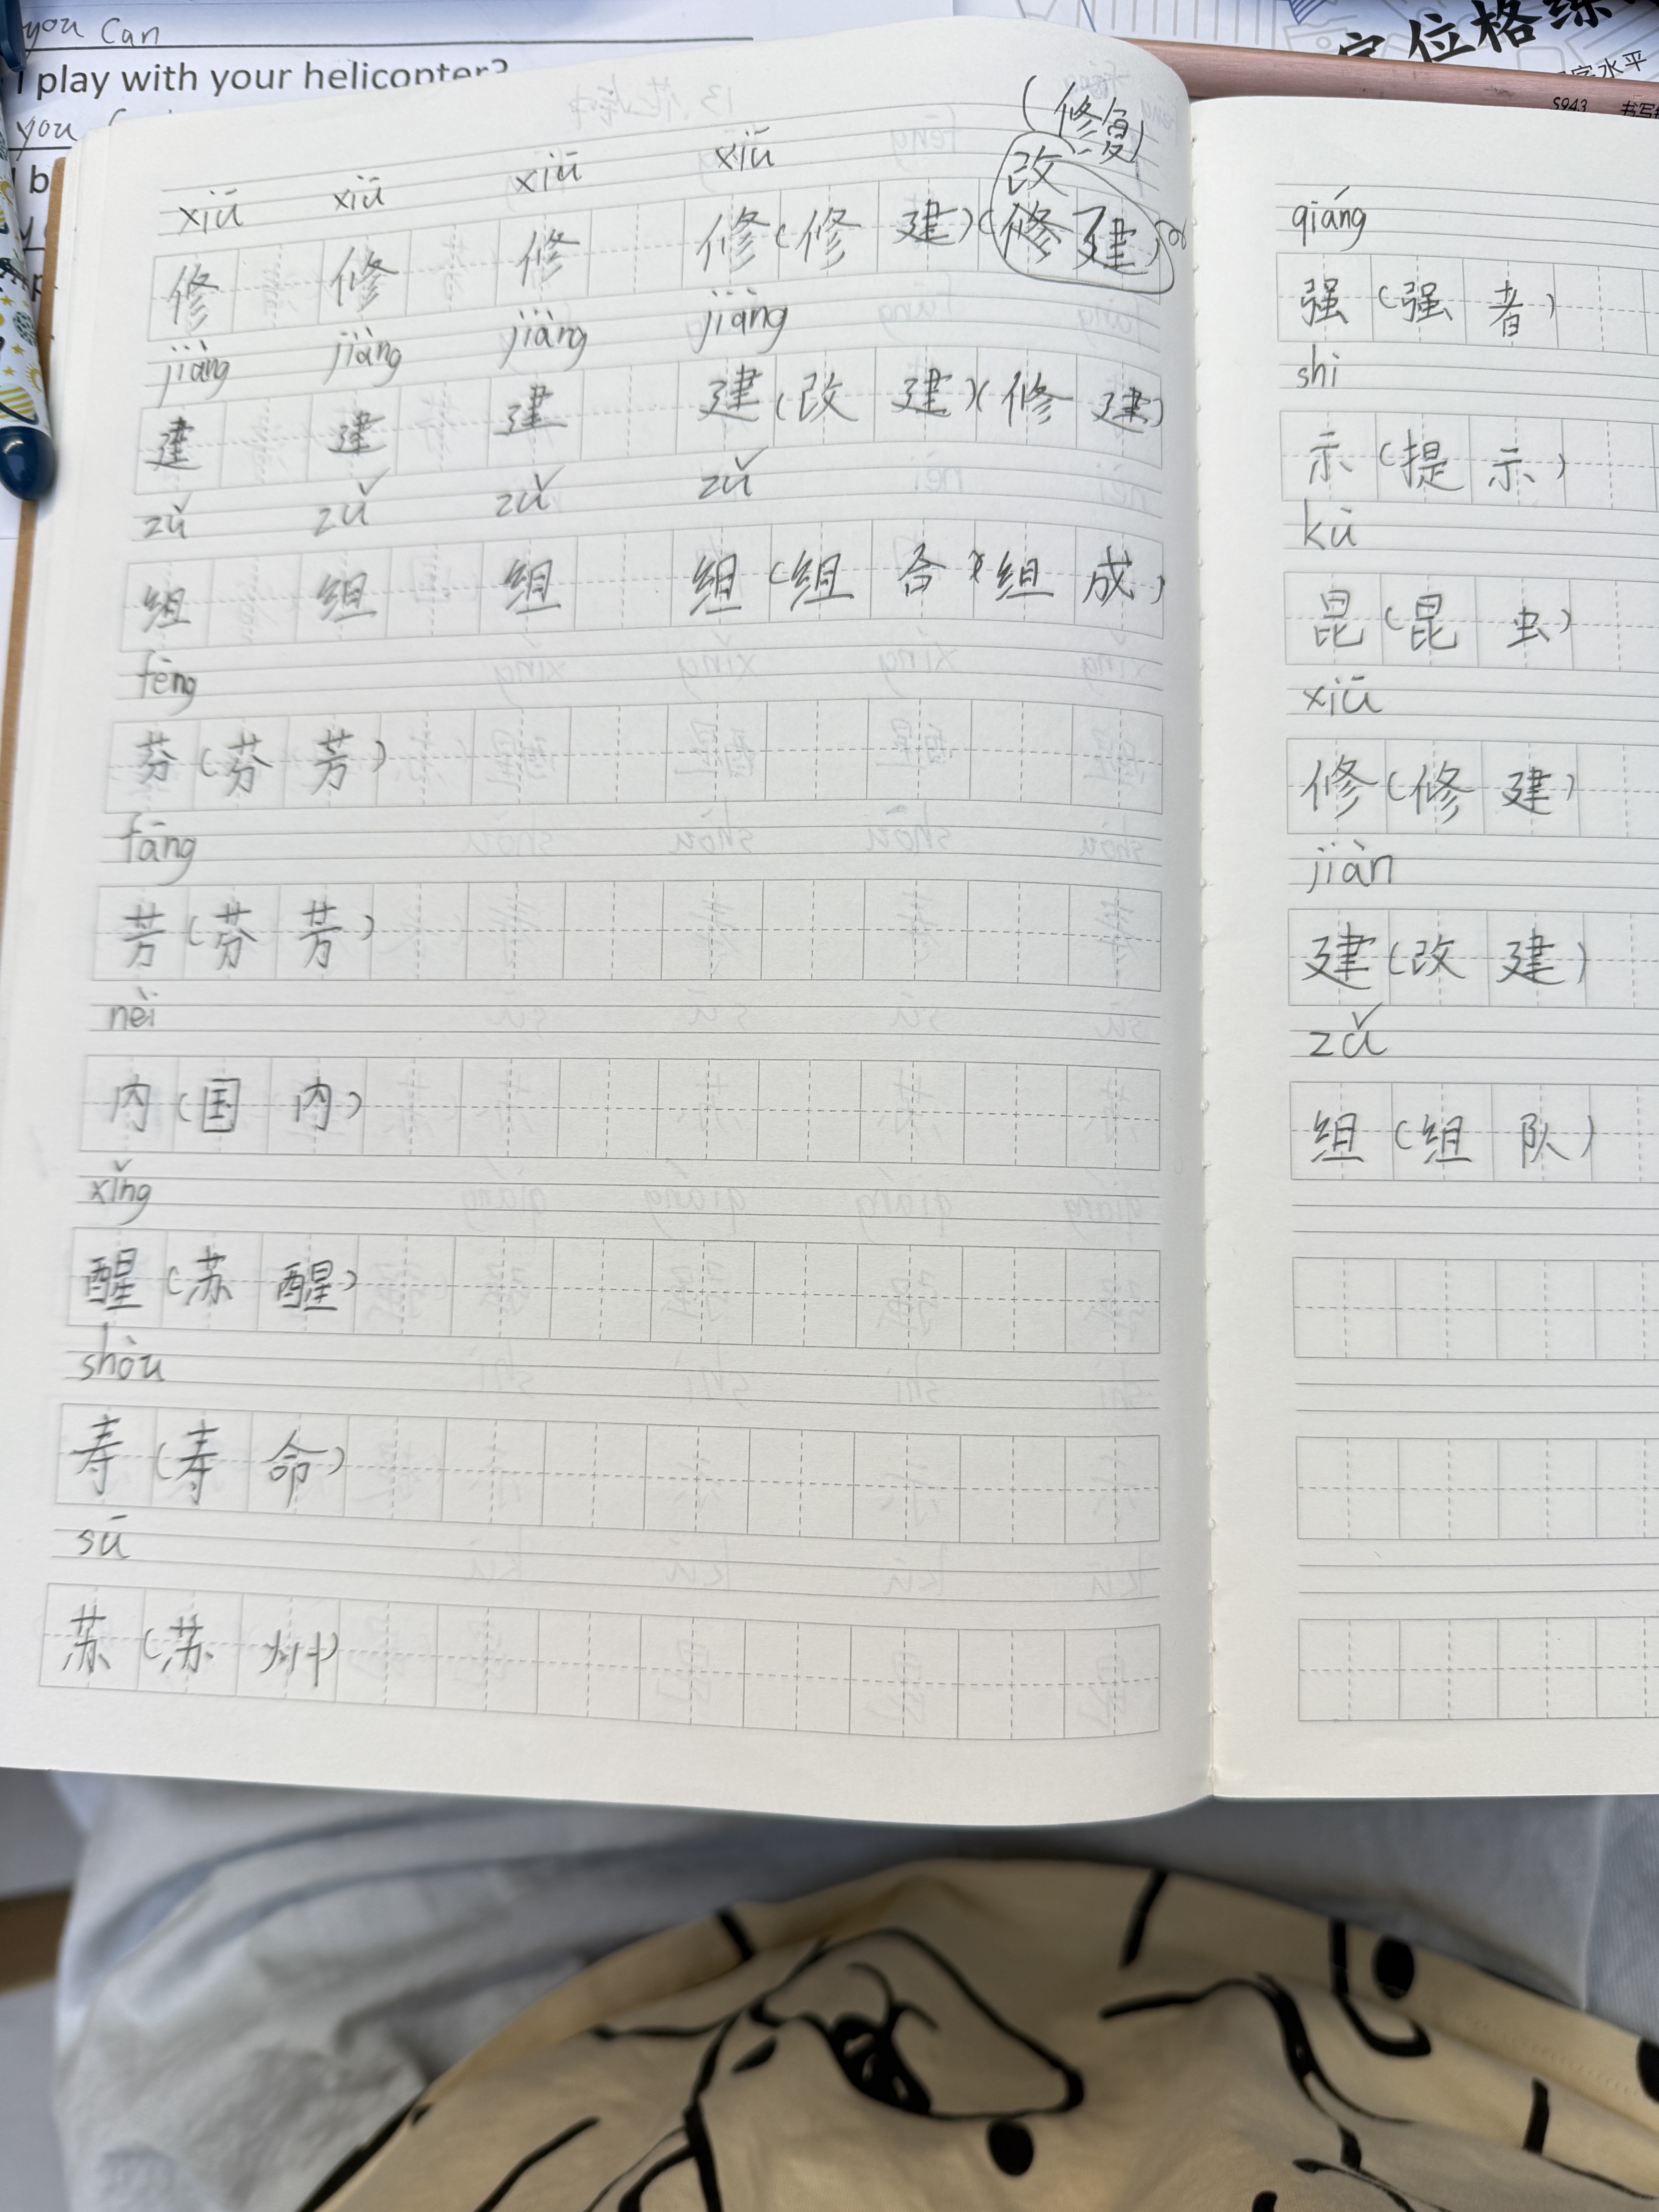 you can
I play with your helicopter?
you
定位格练
写字水平
S943
(修复)
改
xiū xiū xiū xiū
修 修 修 修(修建)(修建)
jiàng jiàng jiàng jiàng
建 建 建 建(改建)(修建)
zǔ zǔ zǔ zǔ
组 组 组 组(组合)(组成)
fēng
芬(芬芳)
fāng
芳(芬芳)
nèi
内(国内)
xǐng
醒(苏醒)
shòu
寿(寿命)
sū
苏(苏州)
qiáng
强(强者)
shì
示(提示)
kū
昆(昆虫)
xiū
修(修建)
jiàn
建(改建)
zǔ
组(组队)